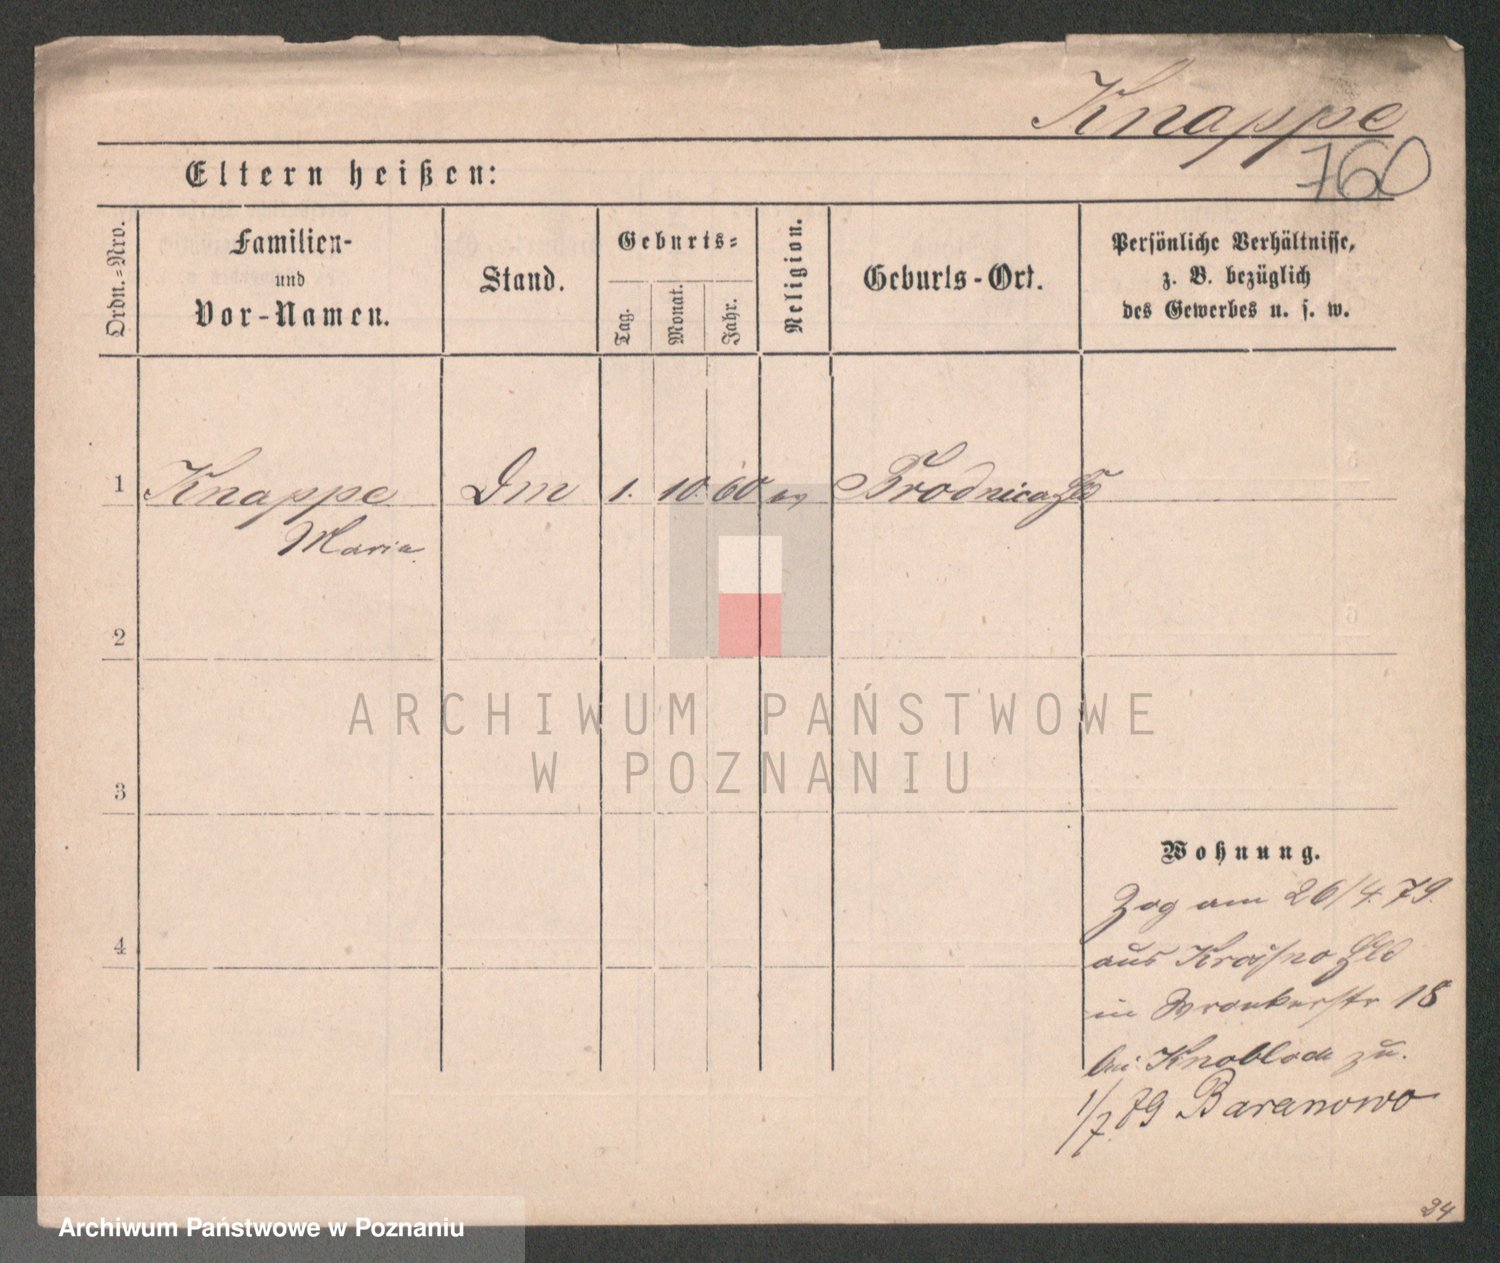 Knappe
760
Eltern heißen:
Ordn.-Nro.
Familien-
und
Vor-Namen.
Stand.
Geburts-
Tag.
Monat.
Jahr.
Religion.
Geburts-Ort.
Persönliche Verhältnisse,
z. B. bezüglich
des Gewerbes u. s. w.
1 Knappe Dm 1. 10. 60 ev Brodnica
Maria
2
3
4
ARCHIWUM PAŃSTWOWE
W POZNANIU
Wohnung.
Zog am 26/4. 79.
aus
in Wronkerstr 18
bei Knobloch zu.
1/7 79 Baranowo
24
Archiwum Państwowe w Poznaniu